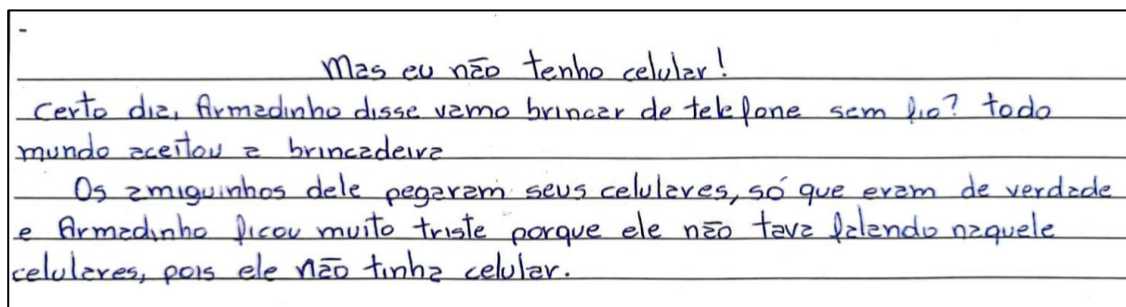 Mas eu não tenho celular!
Certo dia, Armadinho disse vamo brincar de telefone sem fio? todo
mundo aceitou a brincadeira
Os amiguinhos dele pegaram seus celulares, só que eram de verdade
e Armadinho ficou muito triste porque ele não tava falando naquele
celulares, pois ele não tinha celular.